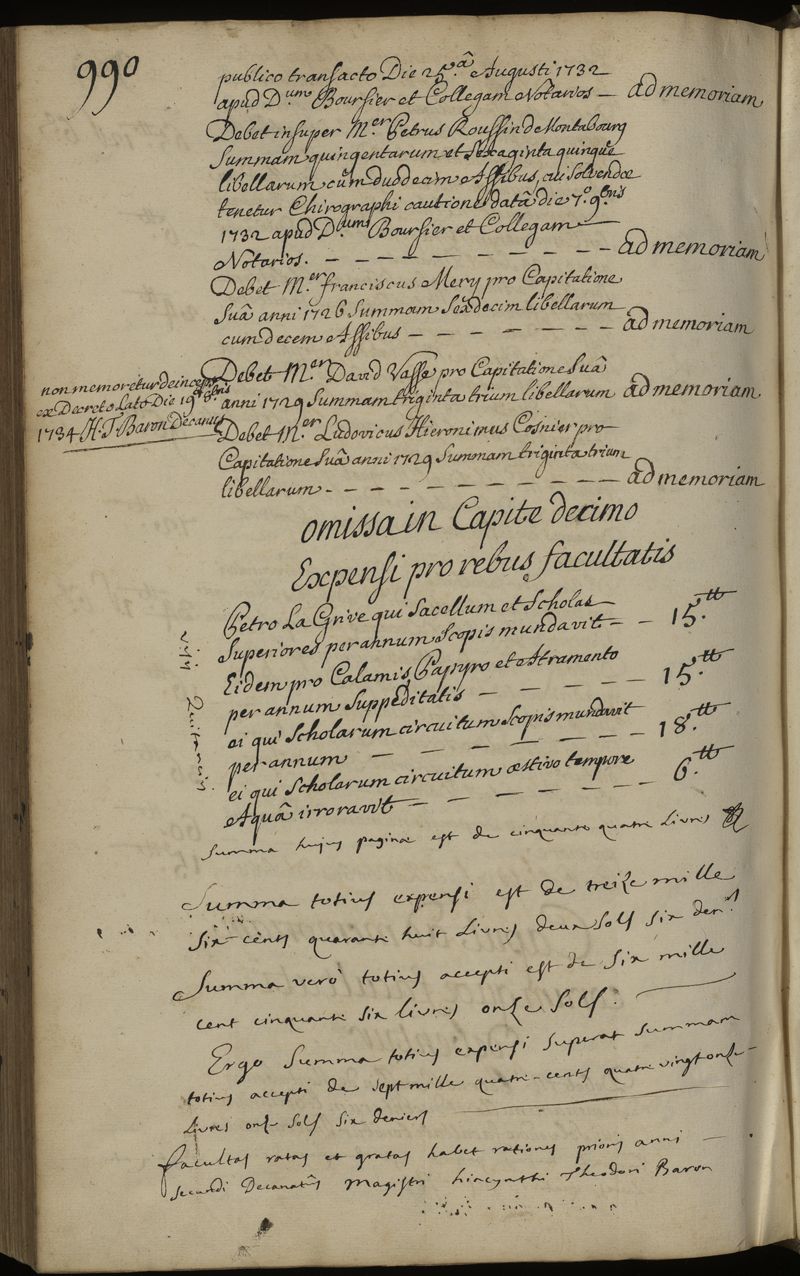 990
publico transacto Die 25.â Augusti 1732
apud D.um Boursier et Collegam Notarios — ad memoriam
Debet insuper M.er Petrus Roussin de Montabourg
Summam quingentarum et Sexaginta quinque
libellarum cum duodecim Assibus, cui Solvendæ
tenetur Chirographi cautione datâ die 7.º 9.bris
1732 apud D.um Boursier et Collegam
Notarios. — — — — — — — — — ad memoriam
Debet M.er franciscus Mery pro Capitatione
Suâ anni 1726 Summam Sexdecim libellarum
cum decem Assibus — — — — — — — ad memoriam
Debet M.er David Vasse pro Capitatione Suâ
anni 1729 Summam triginta trium libellarum ad memoriam
non memoretur deinceps
ex Decreto Lato Die 19 8bris
1734 H. T. Baron Decanus
Debet M.er Ludovicus Hieronimus Cosnier pro
Capitatione Suâ anni 1729 Summam triginta trium
libellarum - — — — — — — — — — ad memoriam
omissa in Capite decimo
Expensi pro rebus facultatis
Petro La Grive qui Sacellum et Scholas
Superiores per annum Scopis mundavit — — 15.tt
Eidem pro Calamis, Papyro et Atramento
per annum Suppeditatis — — — — — 15.tt
ei qui Scholarum circuitum Scopis mundavit
per annum — — — — — — — 18.tt
ei qui Scholarum circuitum æstivo tempore
Aquâ irroravit — — — — — — 6.tt
visis Quitanciis
Summa hujus paginæ est de cinquante quatre Livres
Summa totius expensi est de treize mille
Six cents quarante huit Livres deux Sols Six den.rs
Summa verò totius accepti est de Six mille
cent cinquante Six livres onze Sols.
Ergo Summa totius expensi Superat Summam
totius accepti de Sept mille quatre-cents quatre vingt onze
Livres onze Sols Six deniers
facultas ratas et gratas habet rationes prioris anni
Secundi Decanatûs Magistri hiacynthi Theodori Baron